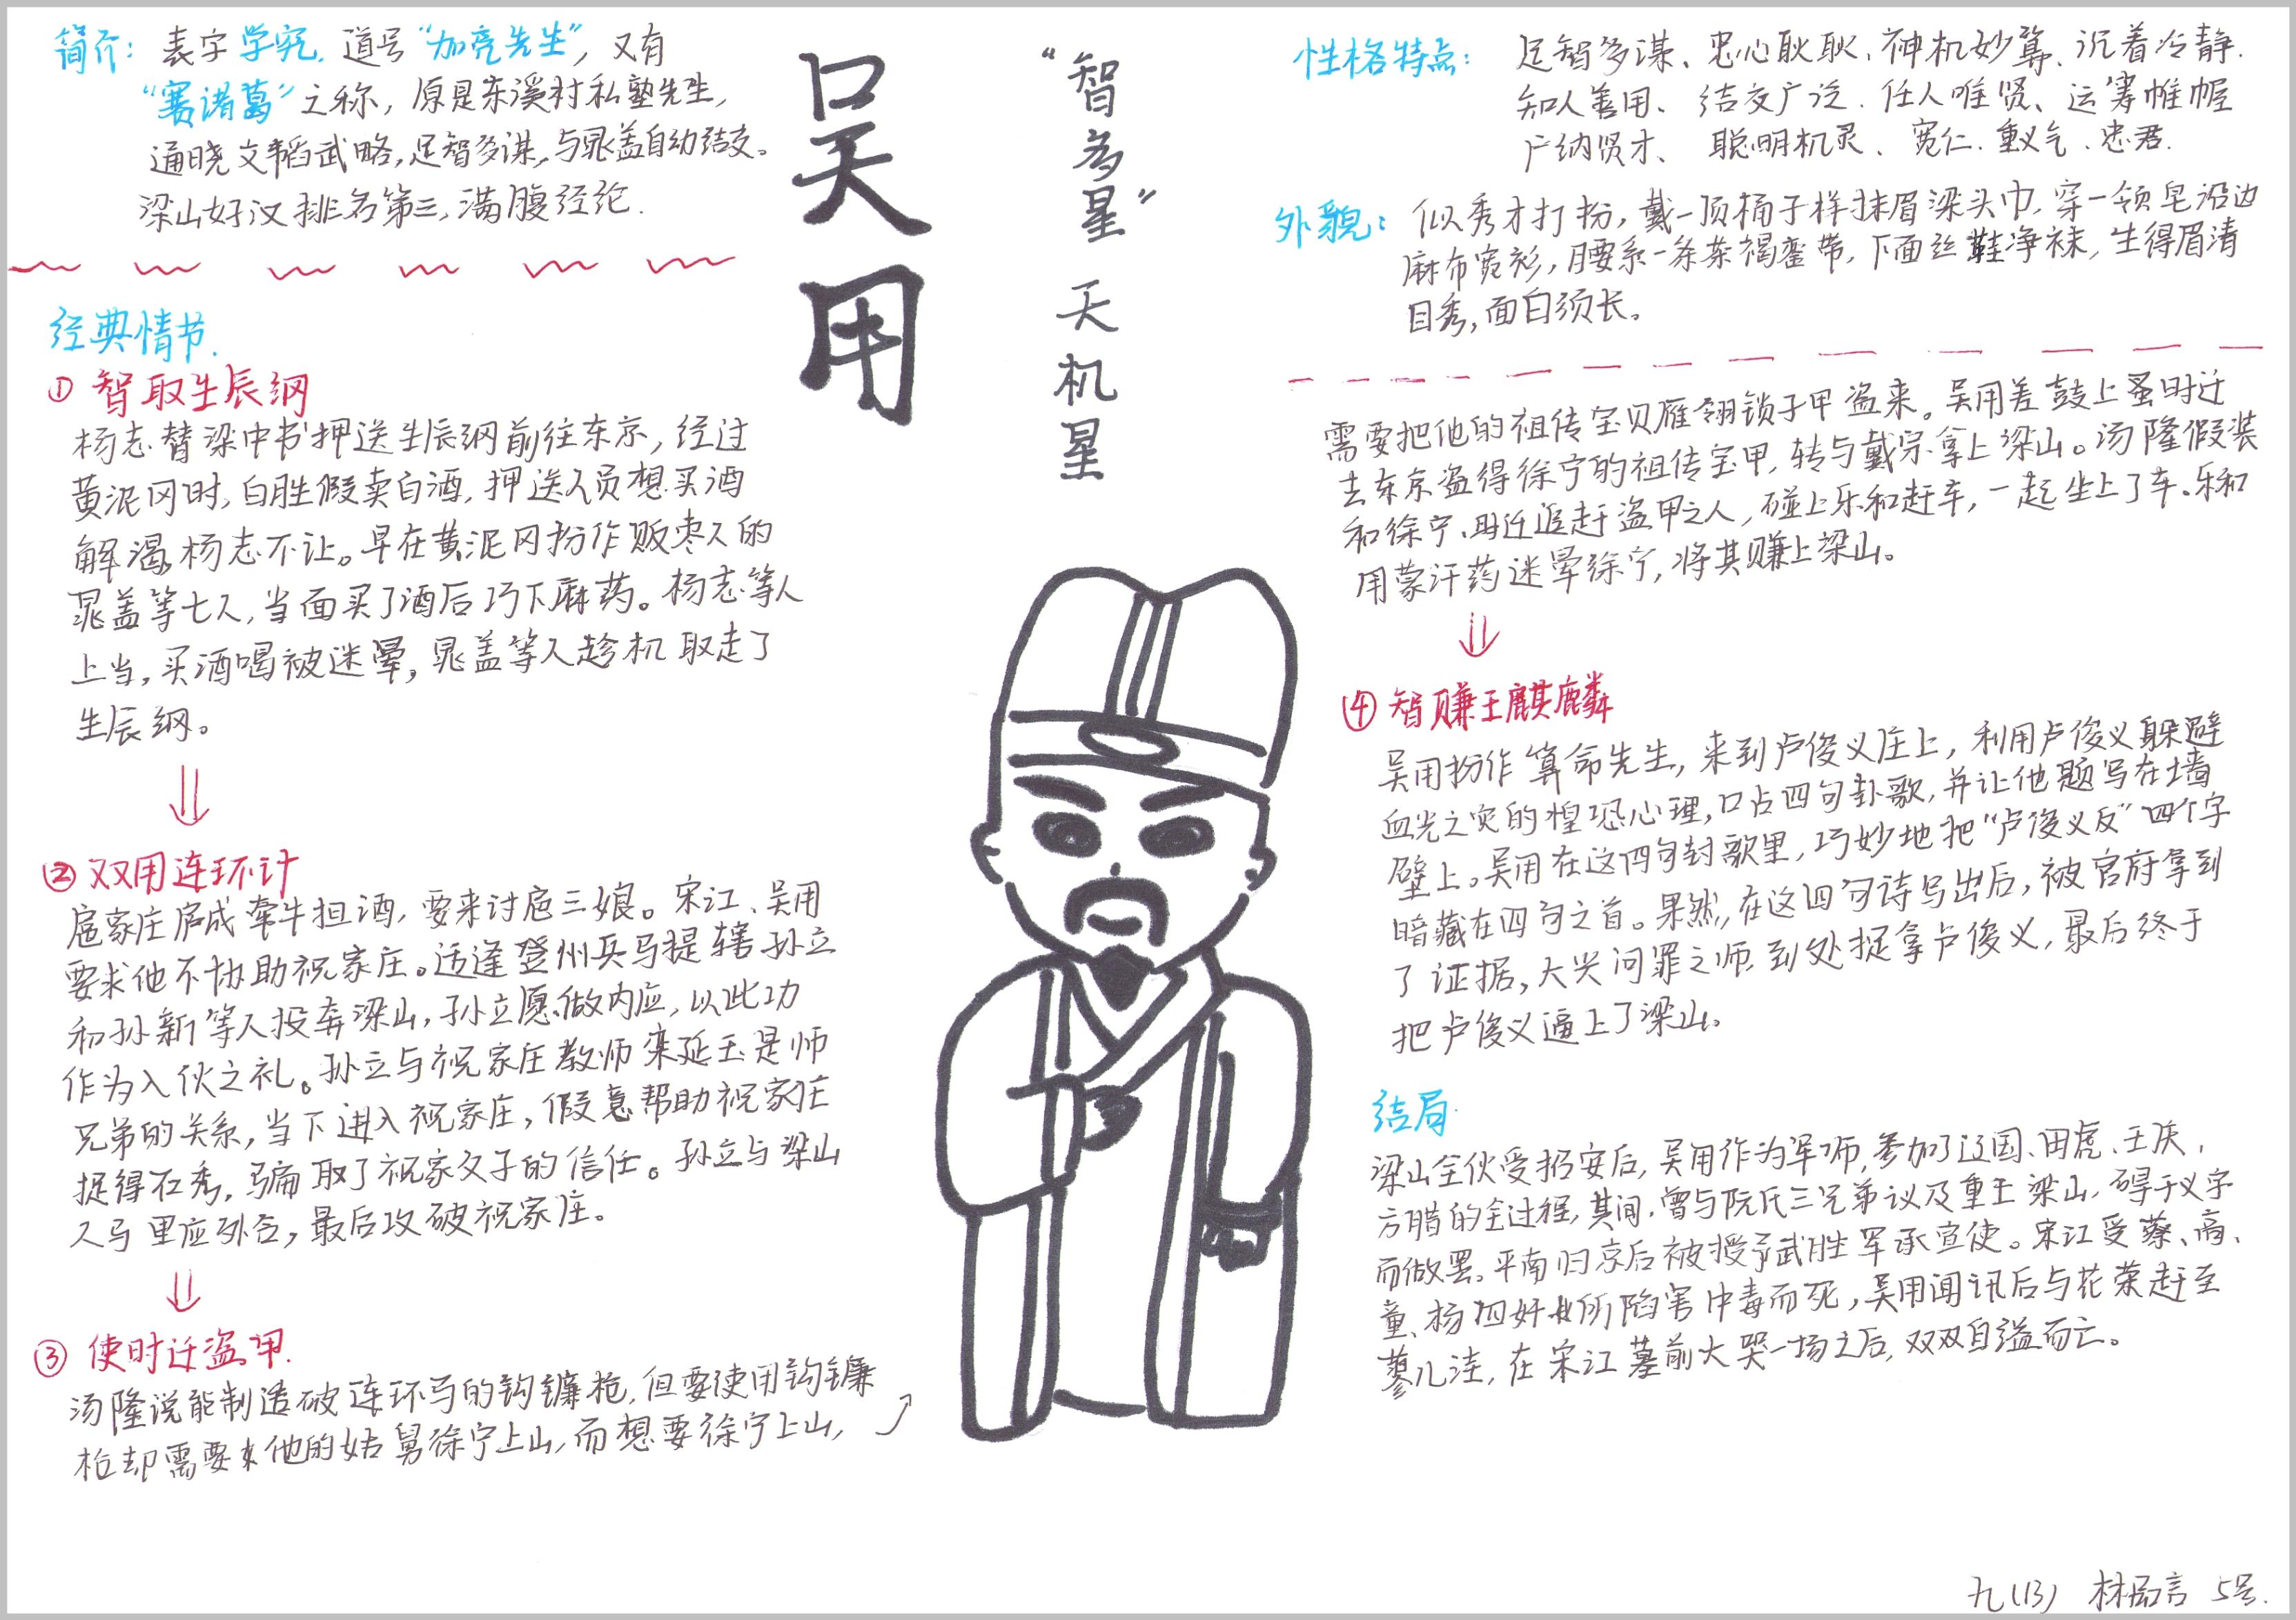 简介：表字学究. 道号“加亮先生”, 又有
“赛诸葛”之称, 原是东溪村私塾先生,
通晓文韬武略, 足智多谋, 与晁盖自幼结交。
梁山好汉排名第三, 满腹经纶.
经典情节.
① 智取生辰纲
杨志替梁中书押送生辰纲前往东京, 经过
黄泥冈时, 白胜假卖白酒, 押送人员想买酒
解渴, 杨志不让。早在黄泥冈扮作贩枣人的
晁盖等七人, 当面买了酒后巧下麻药。杨志等人
上当, 买酒喝被迷晕, 晁盖等人趁机取走了
生辰纲。
② 双用连环计
扈家庄扈成牵牛担酒, 要来讨扈三娘。宋江、吴用
要求他不协助祝家庄。适逢登州兵马提辖孙立
和孙新等人投奔梁山, 孙立愿做内应, 以此功
作为入伙之礼。孙立与祝家庄教师栾延玉是师
兄弟的关系, 当下进入祝家庄, 假意帮助祝家庄
捉得石秀, 骗取了祝家父子的信任。孙立与梁山
人马里应外合, 最后攻破祝家庄。
③ 使时迁盗甲.
汤隆说能制造破连环马的钩镰枪, 但要使用钩镰
枪却需要他的姑舅徐宁上山, 而想要徐宁上山,
吴用
“智多星” 天机星
性格特点：足智多谋、忠心耿耿、神机妙算、沉着冷静.
知人善用、结交广泛. 任人唯贤、运筹帷幄
广纳贤才、聪明机灵、宽仁. 重义气、忠君.
外貌：似秀才打扮, 戴一顶桶子样抹眉梁头巾, 穿一领皂沿边
麻布宽衫, 腰系一条茶褐銮带, 下面丝鞋净袜, 生得眉清
目秀, 面白须长。
需要把他的祖传宝贝雁翎锁子甲盗来。吴用差鼓上蚤时迁
去东京盗得徐宁的祖传宝甲, 转与戴宗拿上梁山。汤隆假装
和徐宁、时迁追赶盗甲之人, 碰上乐和赶车, 一起坐上了车. 乐和
用蒙汗药迷晕徐宁, 将其赚上梁山。
④ 智赚玉麒麟
吴用扮作算命先生, 来到卢俊义庄上, 利用卢俊义躲避
血光之灾的惶恐心理, 口占四句卦歌, 并让他题写在墙
壁上。吴用在这四句卦歌里, 巧妙地把“卢俊义反”四个字
暗藏在四句之首。果然, 在这四句诗写出后, 被官府拿到
了证据, 大兴问罪之师, 到处捉拿卢俊义, 最后终于
把卢俊义逼上了梁山。
结局.
梁山全伙受招安后, 吴用作为军师, 参加了辽国、田虎、王庆,
方腊的全过程, 其间, 曾与阮氏三兄弟议及重王梁山, 碍于义字
而做罢。平南归京后被授予武胜军承宣使。宋江受蔡、高、
童、杨四奸所陷害中毒而死, 吴用闻讯后与花荣赶至
蓼儿洼, 在宋江墓前大哭一场之后, 双双自溢而亡。
九(13) 5号.